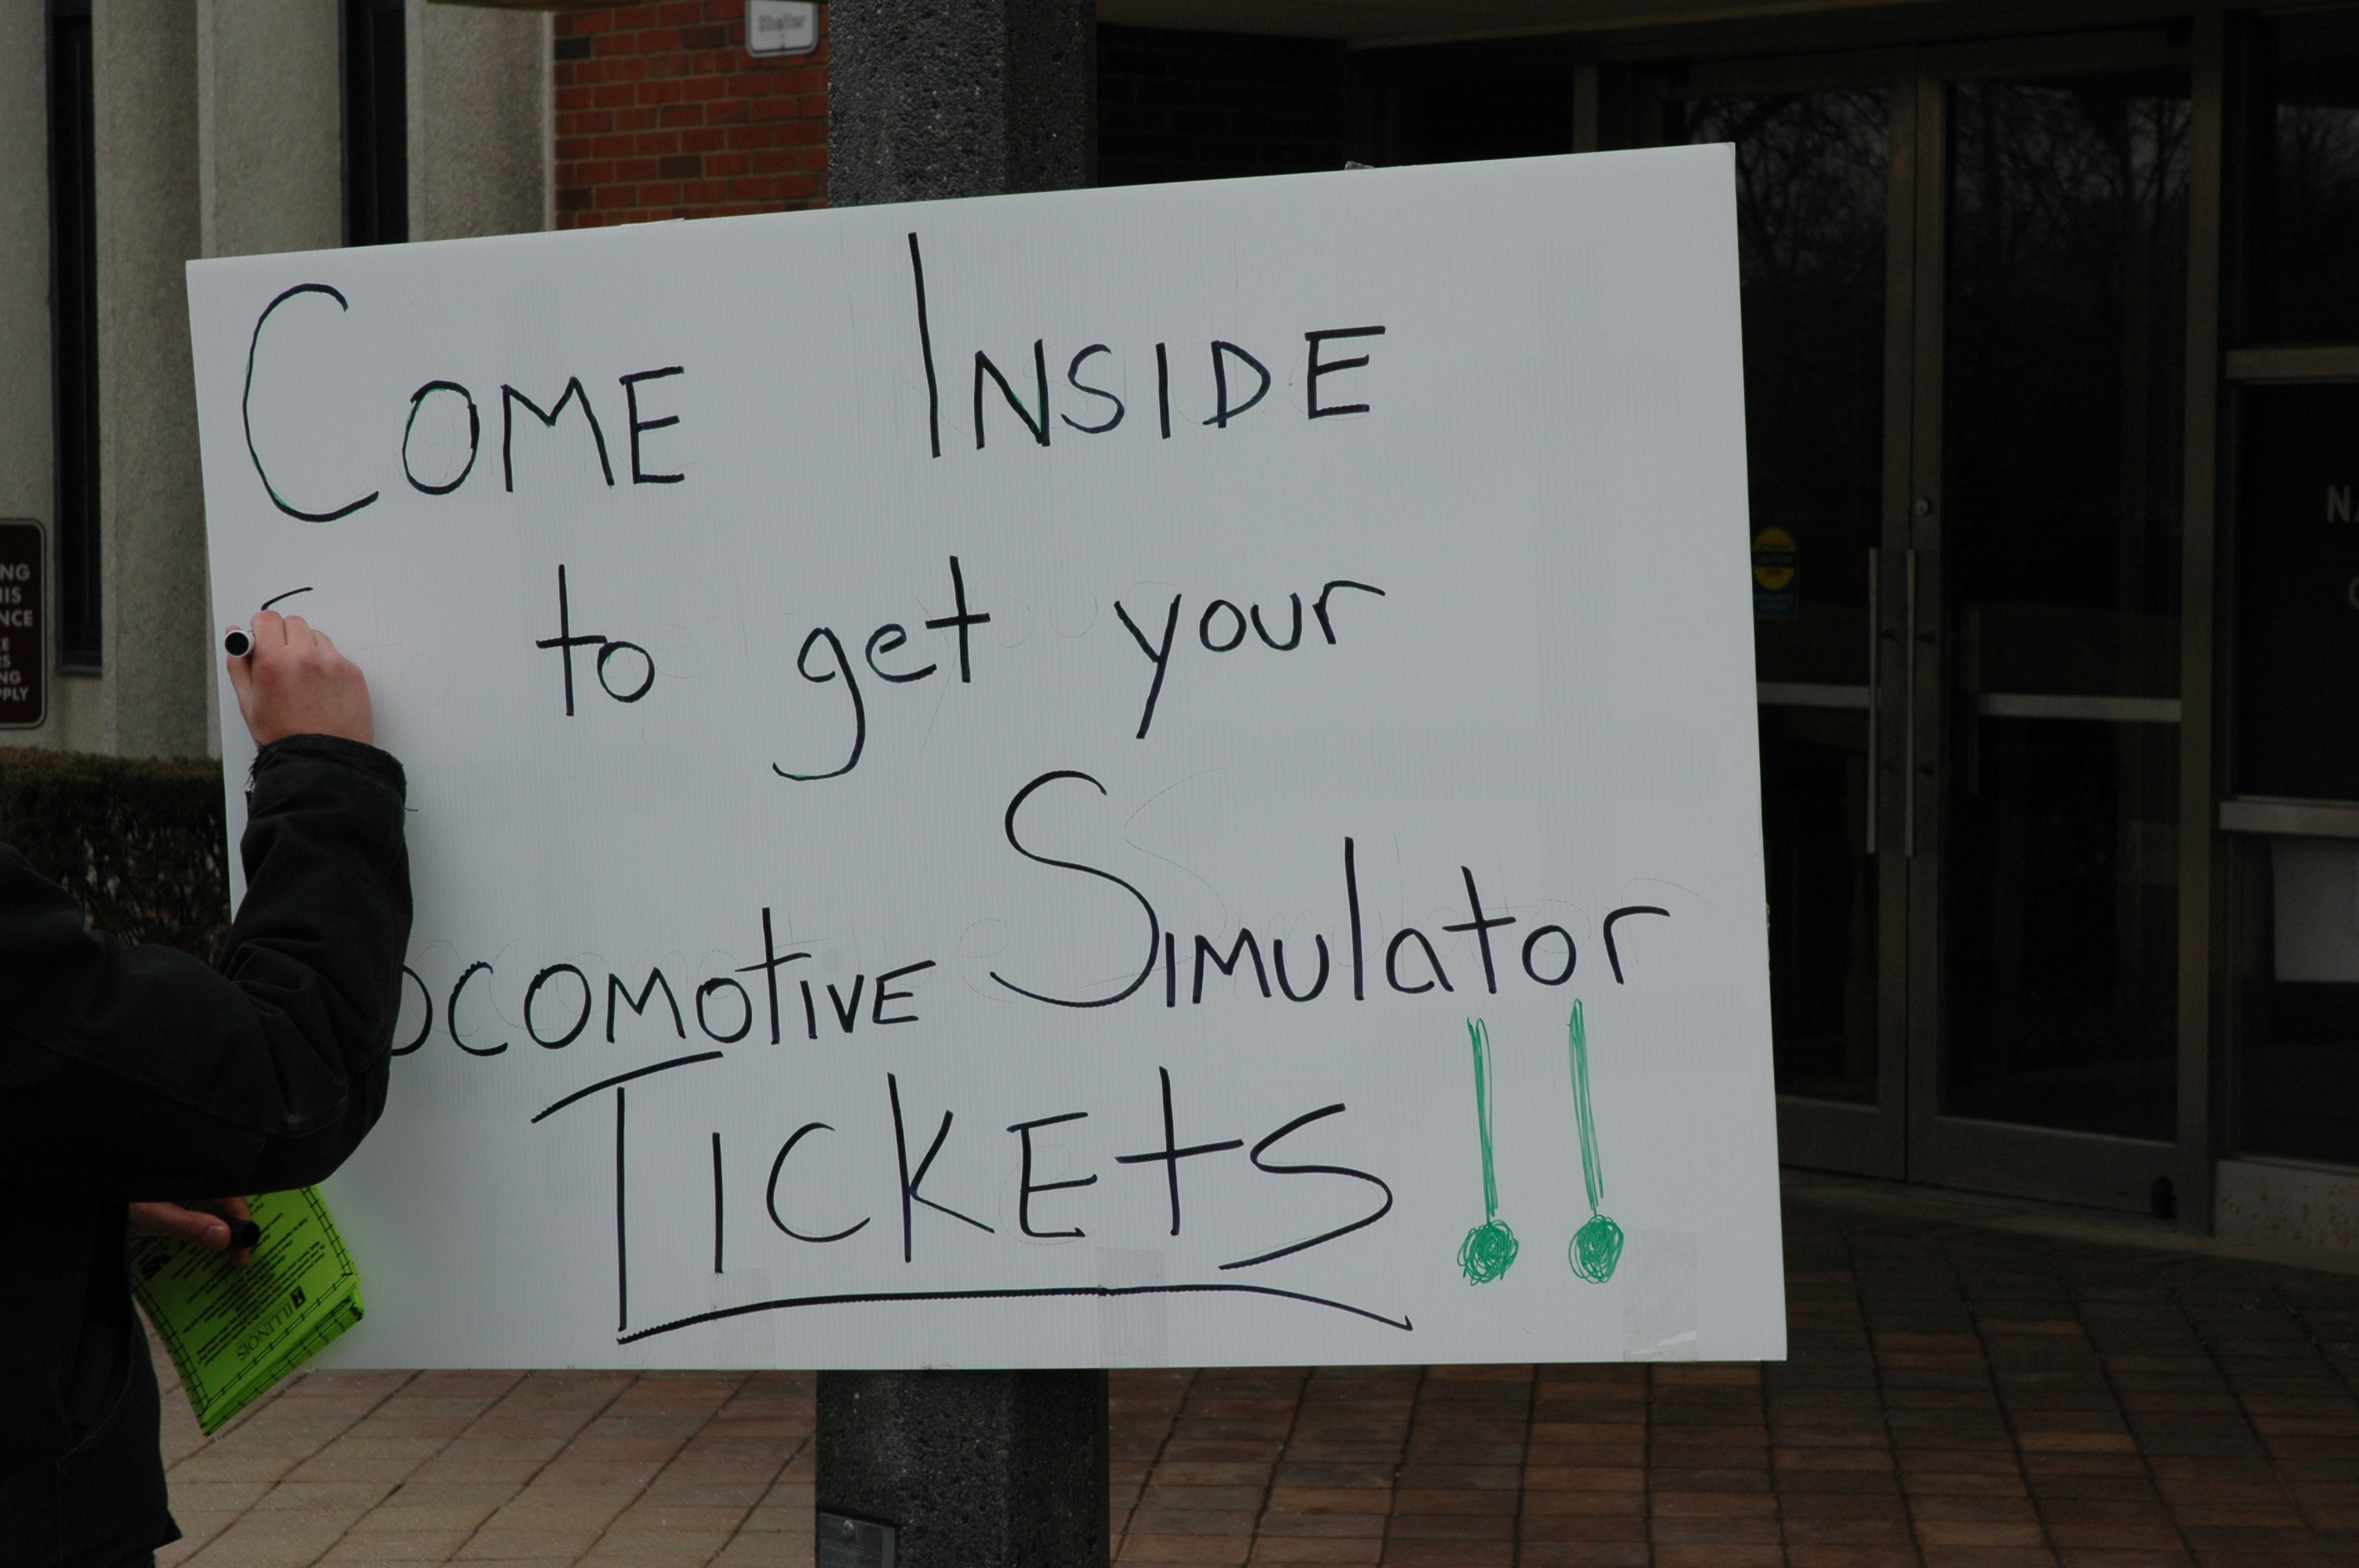 Shelter
COME INSIDE
to get your
OCOMOTIVE SIMULATOR
TICKETS!!
NG
IS
NCE
E
RS
NG
PPLY
ILLINOIS
NS
N